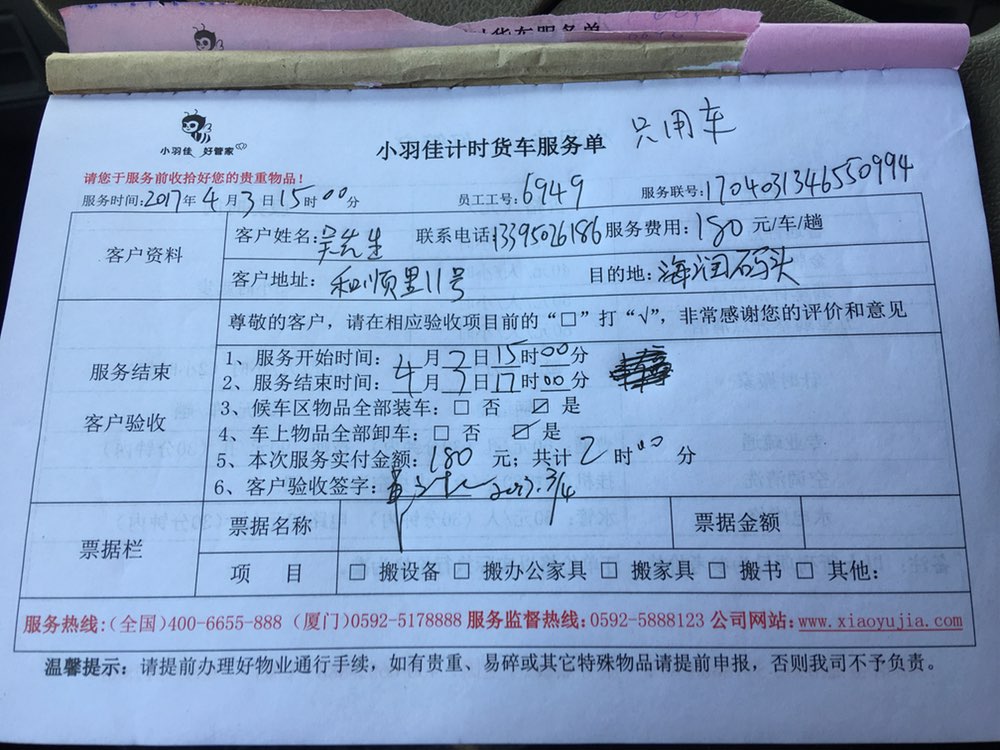 小羽佳 好管家
小羽佳计时货车服务单 只用车
请您于服务前收拾好您的贵重物品！
服务时间:2017年4月3日15时00分 员工工号:6949 服务联号:1704031346550994
客户资料
客户姓名:吴先生 联系电话:13395026186 服务费用:180元/车/趟
客户地址: 和顺里11号 目的地: 海润码头
尊敬的客户，请在相应验收项目前的“□”打“√”，非常感谢您的评价和意见
服务结束
客户验收
1、服务开始时间: 4月3日15时00分
2、服务结束时间: 4月3日17时00分
3、候车区物品全部装车: □ 否 ☑ 是
4、车上物品全部卸车: □ 否 ☑ 是
5、本次服务实付金额: 180 元; 共计 2 时 00 分
6、客户验收签字:
票据栏
票据名称 票据金额
项 目 □ 搬设备 □ 搬办公家具 □ 搬家具 □ 搬书 □ 其他:
服务热线:(全国)400-6655-888 (厦门)0592-5178888 服务监督热线:0592-5888123 公司网站:www.xiaoyujia.com
温馨提示: 请提前办理好物业通行手续，如有贵重、易碎或其它特殊物品请提前申报，否则我司不予负责。